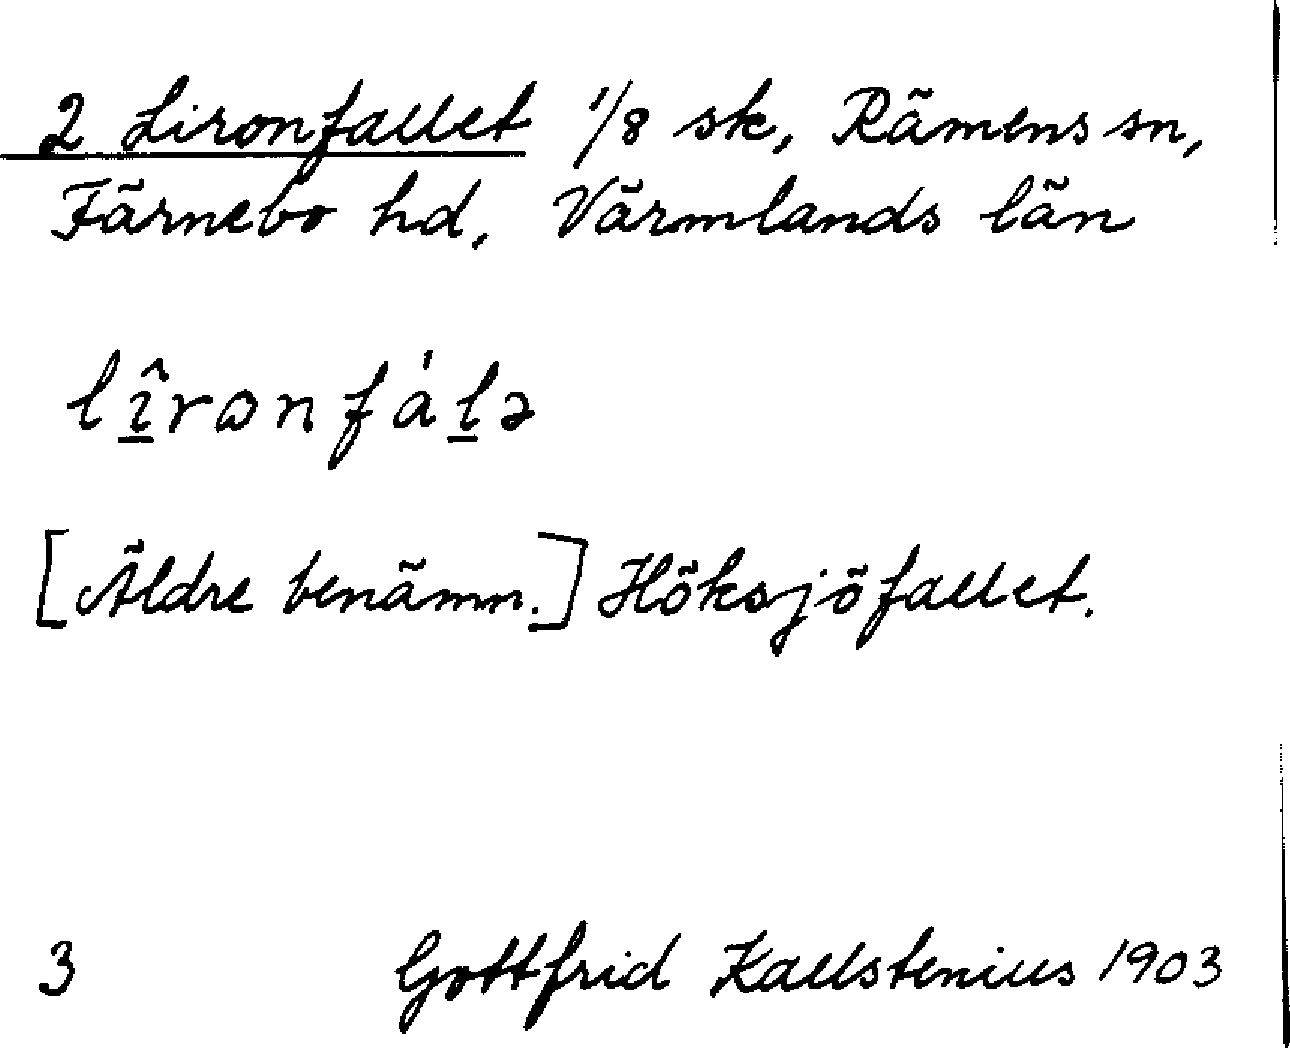 2 Lironfallet 1/8 sk, Rämens sn,
Färnebo hd, Värmlands län
lı̲̂rɷnfál̲ə
[Äldre benämn.] Höksjöfallet.
3 Gottfrid Kallstenius 1903